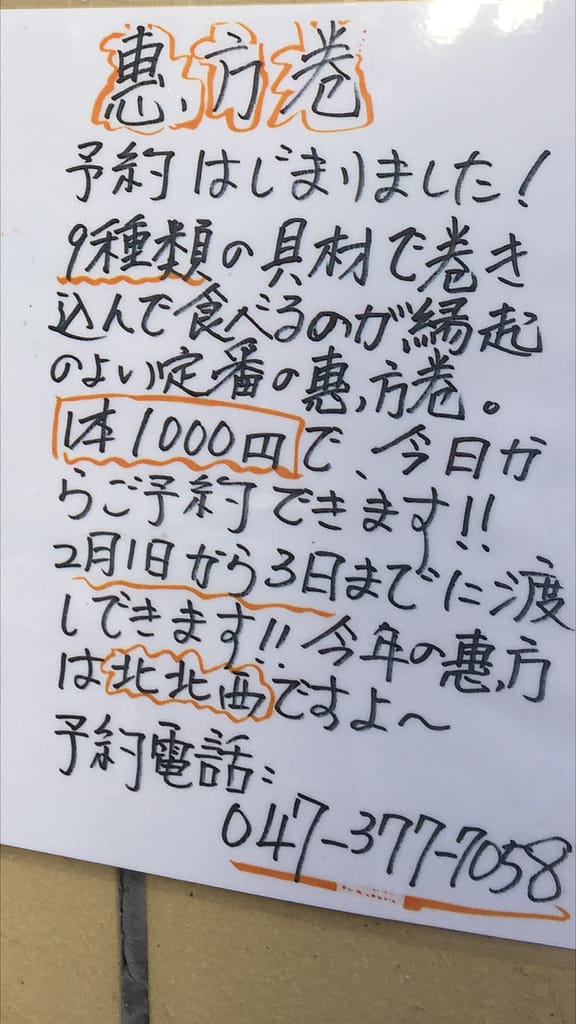 恵方巻
予約はじまりました!
9種類の具材で巻き
込んで食べるのが縁起
のよい定番の恵方巻。
1本1000円で、今日か
らご予約できます!!
2月1日から3日までに渡
しできます!!今年の恵方
は北北西ですよ〜
予約電話:
047-377-7058